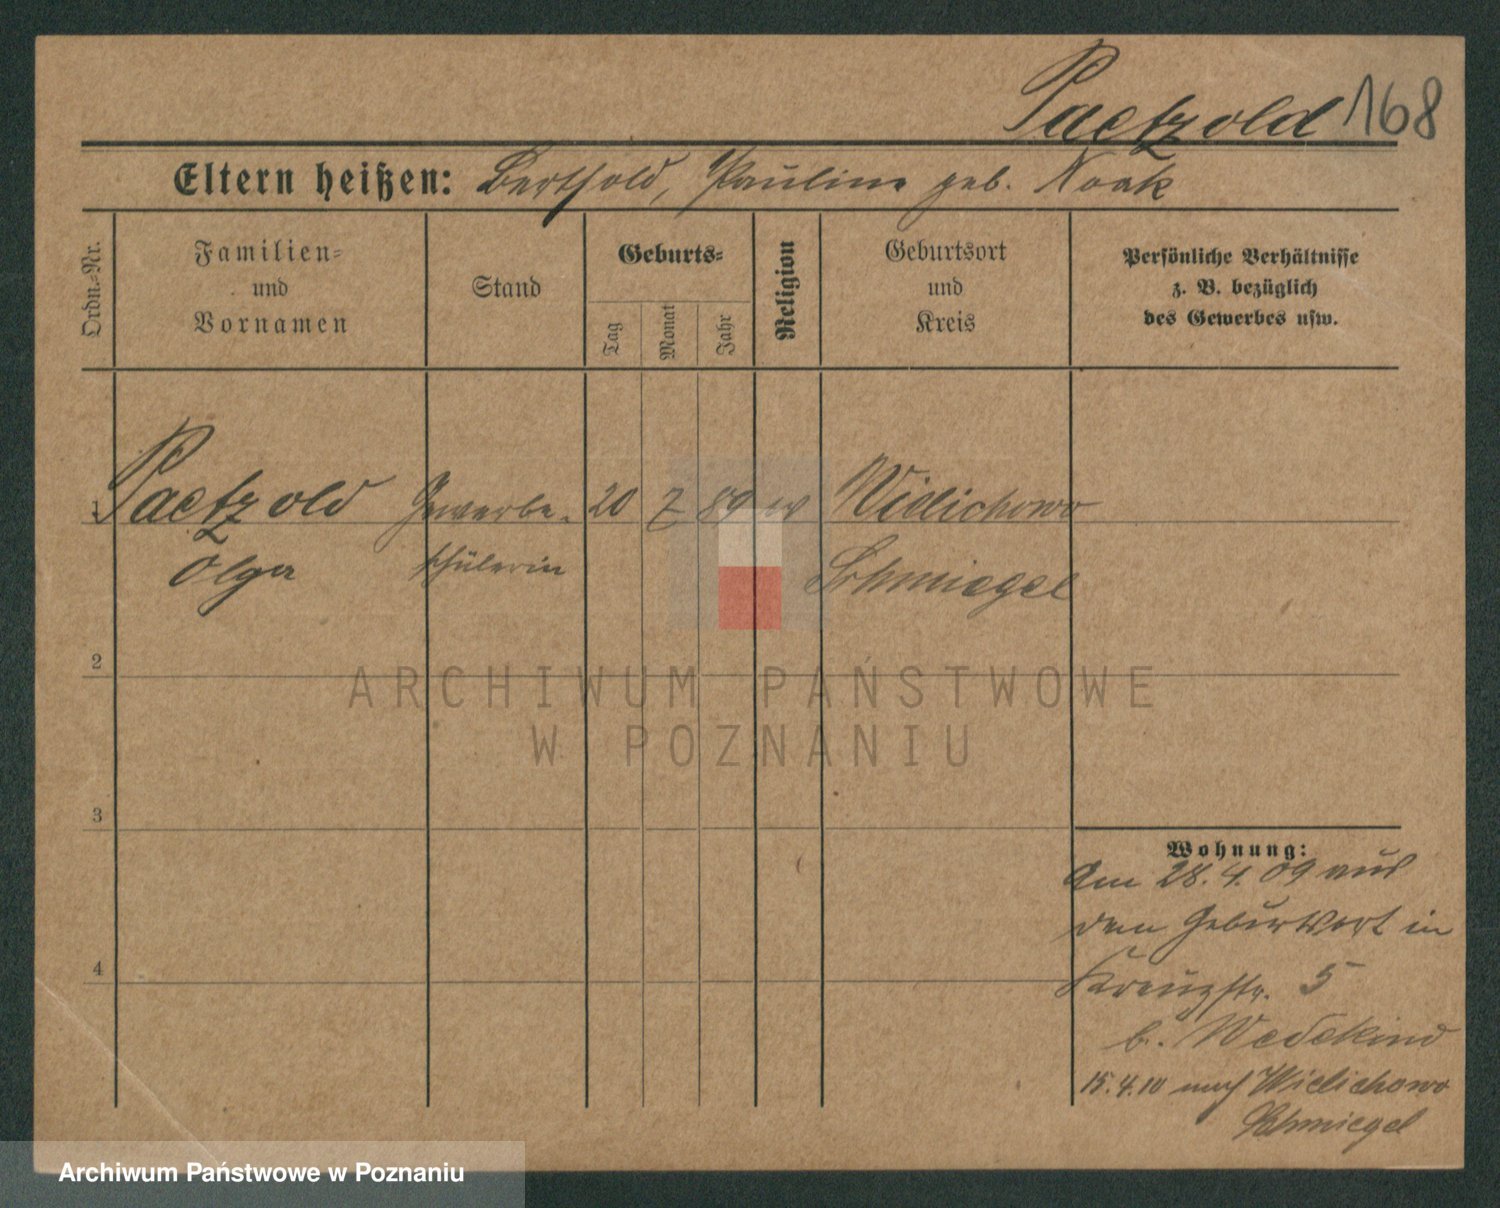 Paetzold 168
Eltern heißen: Berthold, Pauline geb. Noak
Ordn.-Nr.
Familien-
und
Vornamen
Stand
Geburts-
Tag
Monat
Jahr
Religion
Geburtsort
und
Kreis
Persönliche Verhältnisse
z. B. bezüglich
des Gewerbes usw.
1 Paetzold Gewerbe- 20 7 89 Wielichowo
Olga schülerin Schmiegel
2
3
4
Wohnung:
Am 28.4.09 aus
dem Geburtsort in
Kreuzstr. 5
b. Wedekind
15.4.10 nach Wielichowo
Schmiegel
ARCHIWUM PAŃSTWOWE
W POZNANIU
Archiwum Państwowe w Poznaniu